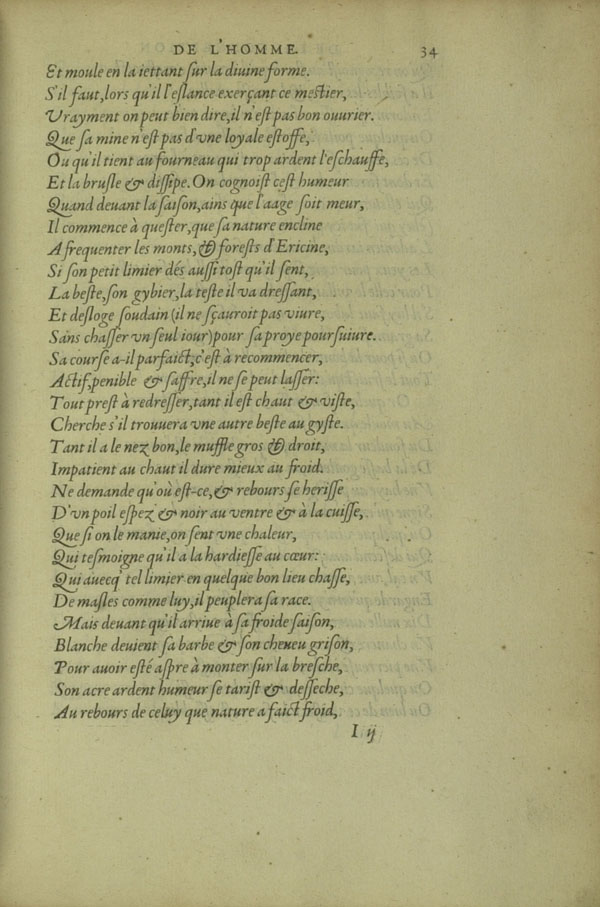 DE L'HOMME. 34
Et moule en la iettant sur la diuine forme.
S'il faut, lors qu'il l'eslance exerçant ce mestier,
Vrayment on peut bien dire, il n'est pas bon ouurier.
Que sa mine n'est pas d'vne loyale estoffe,
Ou qu'il tient au fourneau qui trop ardent l'eschauffe,
Et la brusle & dissipe. On cognoist cest humeur
Quand deuant la saison, ains que l'aage soit meur,
Il commence à quester, que sa nature encline
A frequenter les monts, & forests d'Ericine,
Si son petit limier dés aussi tost qu'il sent,
La beste, son gybier, la teste il va dressant,
Et desloge soudain (il ne sçauroit pas viure,
Sans chasser vn seul iour) pour sa proye poursuiure.
Sa course a-il parfaict, c'est à recommencer,
Actif, penible & saffre, il ne se peut lasser:
Tout prest à redresser, tant il est chaut & viste,
Cherche s'il trouuera vne autre beste au gyste.
Tant il a le nez bon, le muffle gros & droit,
Impatient au chaut il dure mieux au froid.
Ne demande qu'où est-ce, & rebours se herisse
D'vn poil espez & noir au ventre & à la cuisse,
Que si on le manie, on sent vne chaleur,
Qui tesmoigne qu'il a la hardiesse au cœur:
Qui auecq' tel limier en quelque bon lieu chasse,
De masles comme luy, il peuplera sa race.
Mais deuant qu'il arriue à sa froide saison,
Blanche deuient sa barbe & son cheueu grison,
Pour auoir esté aspre à monter sur la bresche,
Son acre ardent humeur se tarist & desseche,
Au rebours de celuy que nature a faict froid,
I ij